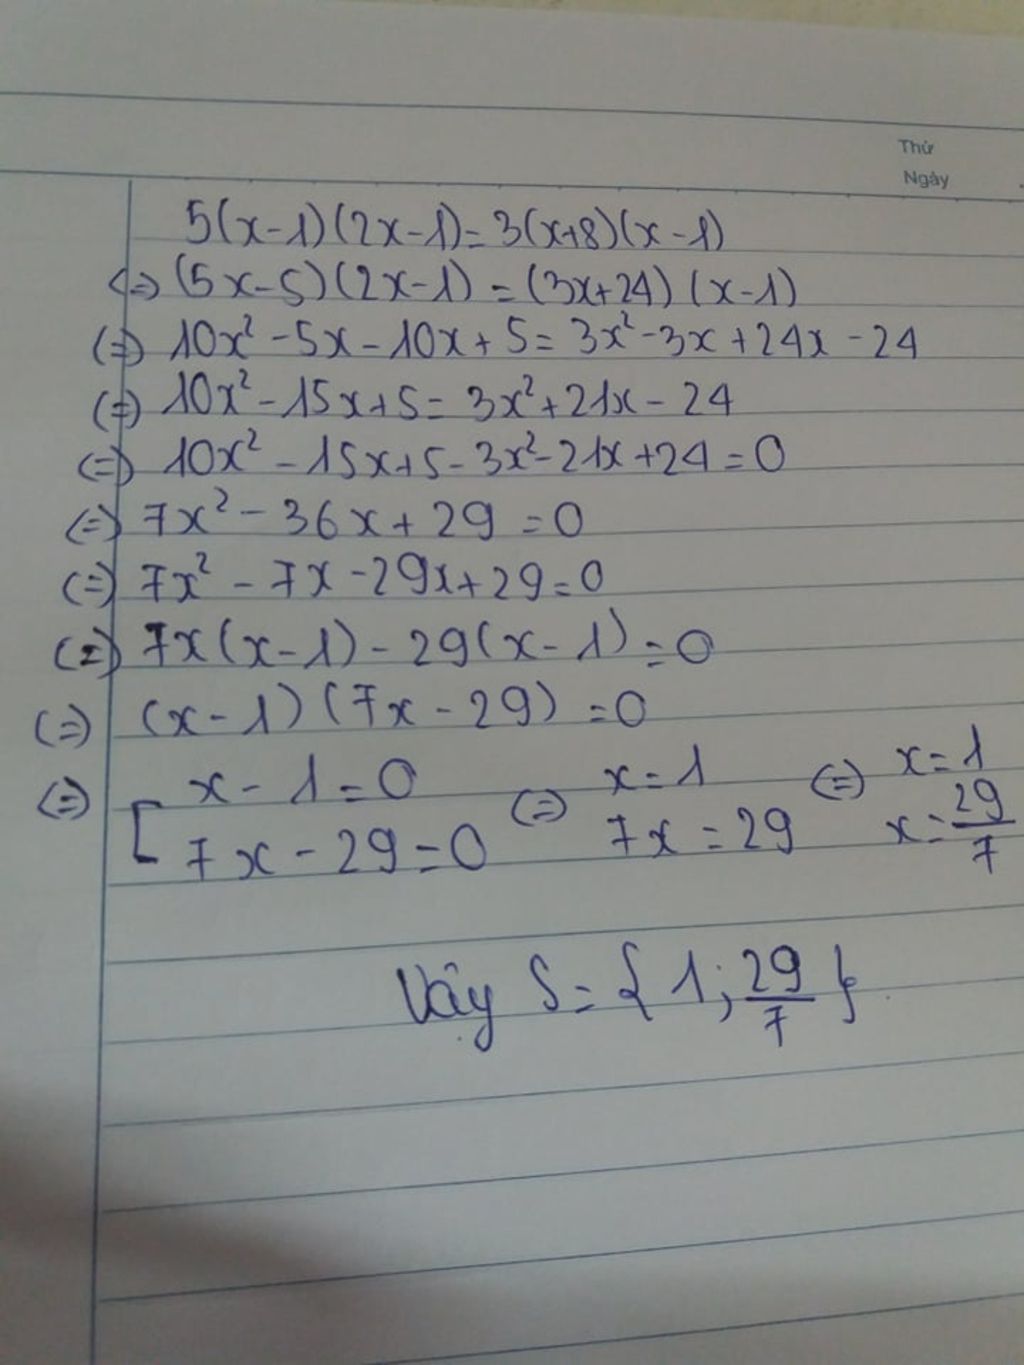 Thứ
Ngày
5(x-1)(2x-1)=3(x+8)(x-1)
<=> (5x-5)(2x-1)=(3x+24)(x-1)
(=) 10x²-5x-10x+5=3x²-3x+24x-24
(=) 10x²-15x+5=3x²+21x-24
(=) 10x²-15x+5-3x²-21x+24=0
(=) 7x²-36x+29=0
(=) 7x²-7x-29x+29=0
(=) 7x(x-1)-29(x-1)=0
(=) (x-1)(7x-29)=0
(=) [ x-1=0 (=) x=1 (=) x=1
7x-29=0 7x=29 x=29/7
Vậy S={1;29/7}